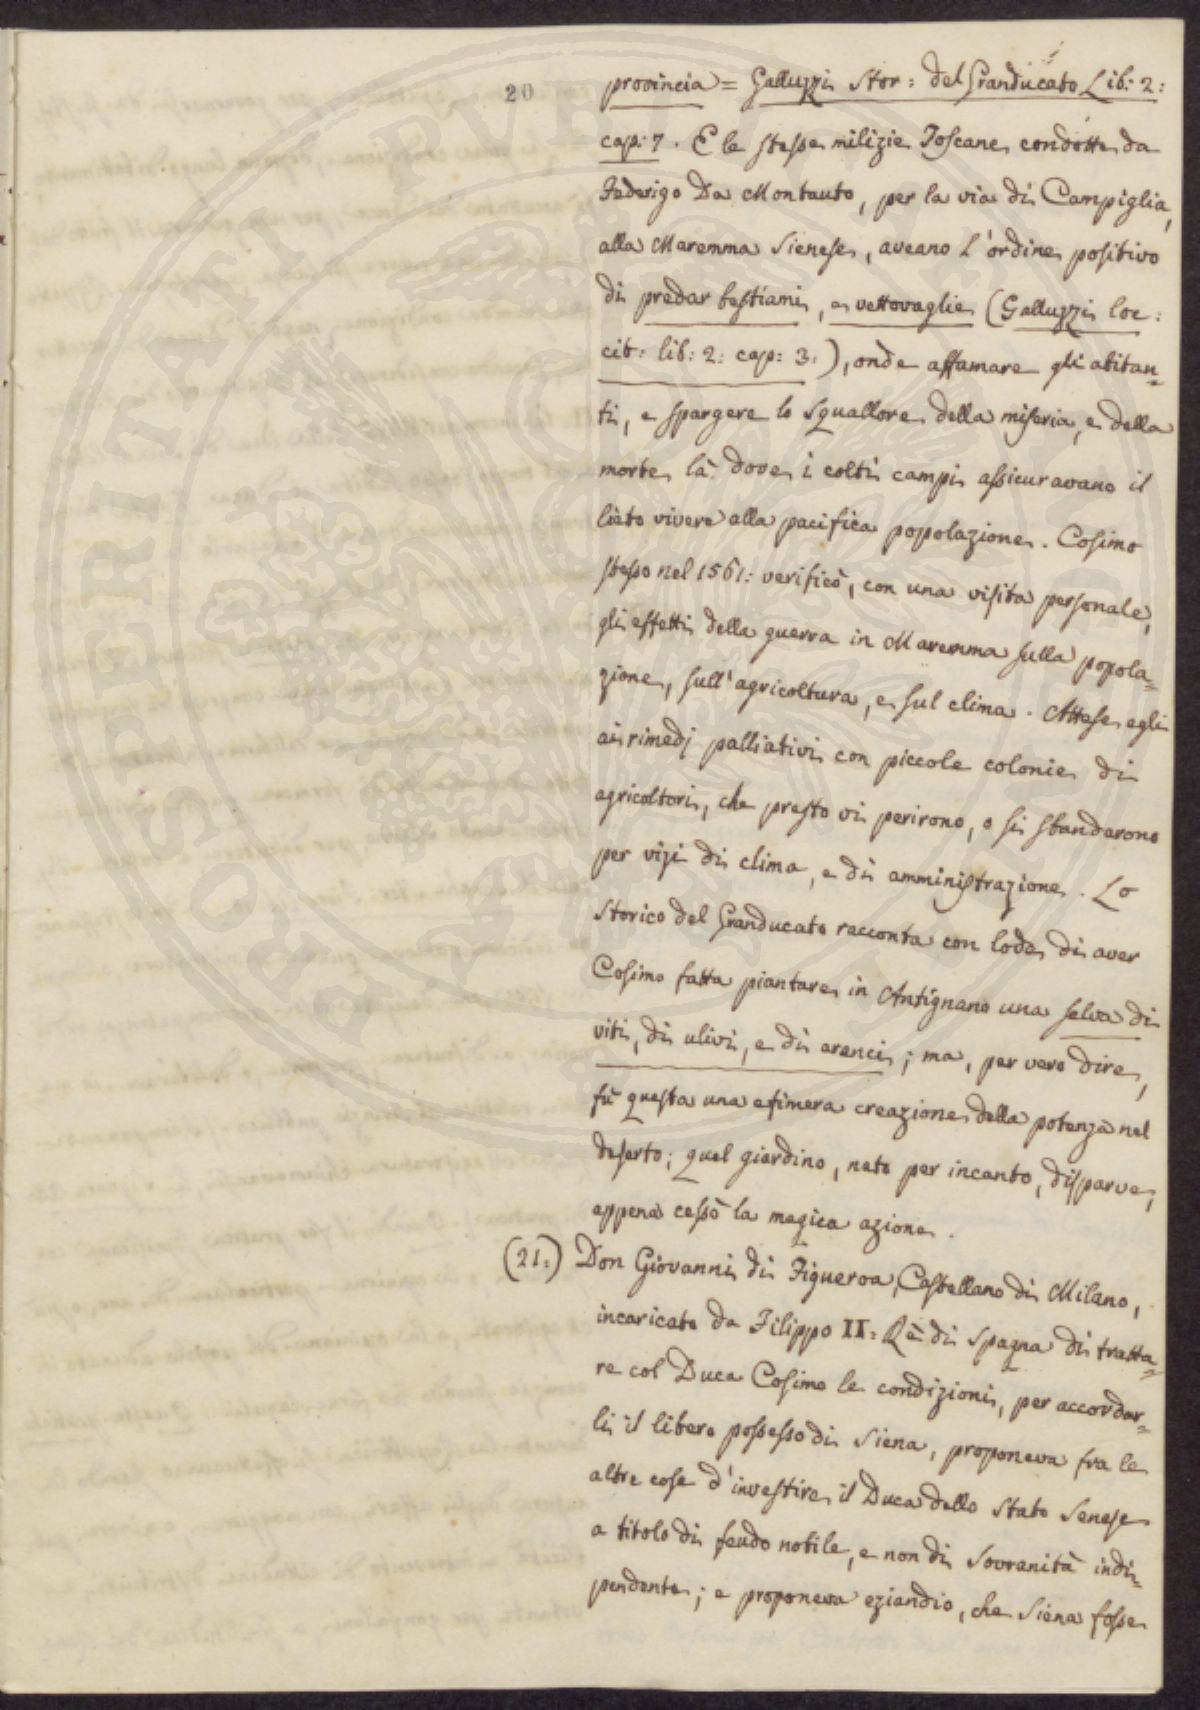 20
provincia = Galluzzi Stor: del Granducato Lib: 2:
cap: 7. E le stesse milizie Toscane condotte da
Federigo Da Montauto, per la via di Campiglia,
alla Maremma Sienese, aveano l'ordine positivo
di predar bestiami, e vettovaglie (Galluzzi loc:
cit: lib: 2: cap: 3:), onde affamare gli abitan=
ti, e spargere lo squallore della miseria, e della
morte là dove i colti campi assicuravano il
lieto vivere alla pacifica popolazione. Cosimo
stesso nel 1561: verificò, con una visita personale,
gli effetti della guerra in Maremma sulla popola=
zione, sull'agricoltura, e sul clima. Attese egli
ai rimedj palliativi con piccole colonie di
agricoltori, che presto vi perirono, o si sbandarono
per vizi di clima, e di amministrazione. Lo
Storico del Granducato racconta con lode di aver
Cosimo fatta piantare in Antignano una selva di
viti, di ulivi, e di aranci; ma, per vero dire,
fù questa una efimera creazione della potenza nel
deserto; quel giardino, nato per incanto, disparve,
appena cessò la magica azione.
(21:) Don Giovanni di Figueroa, Castellano di Milano,
incaricato da Filippo II: Rè di Spagna di tratta=
re col Duca Cosimo le condizioni, per accordar=
li il libero possesso di Siena, proponeva fra le
altre cose d'investire il Duca dello Stato Senese
a titolo di feudo nobile, e non di Sovranità indi=
pendente; e proponeva eziandio, che Siena fosse